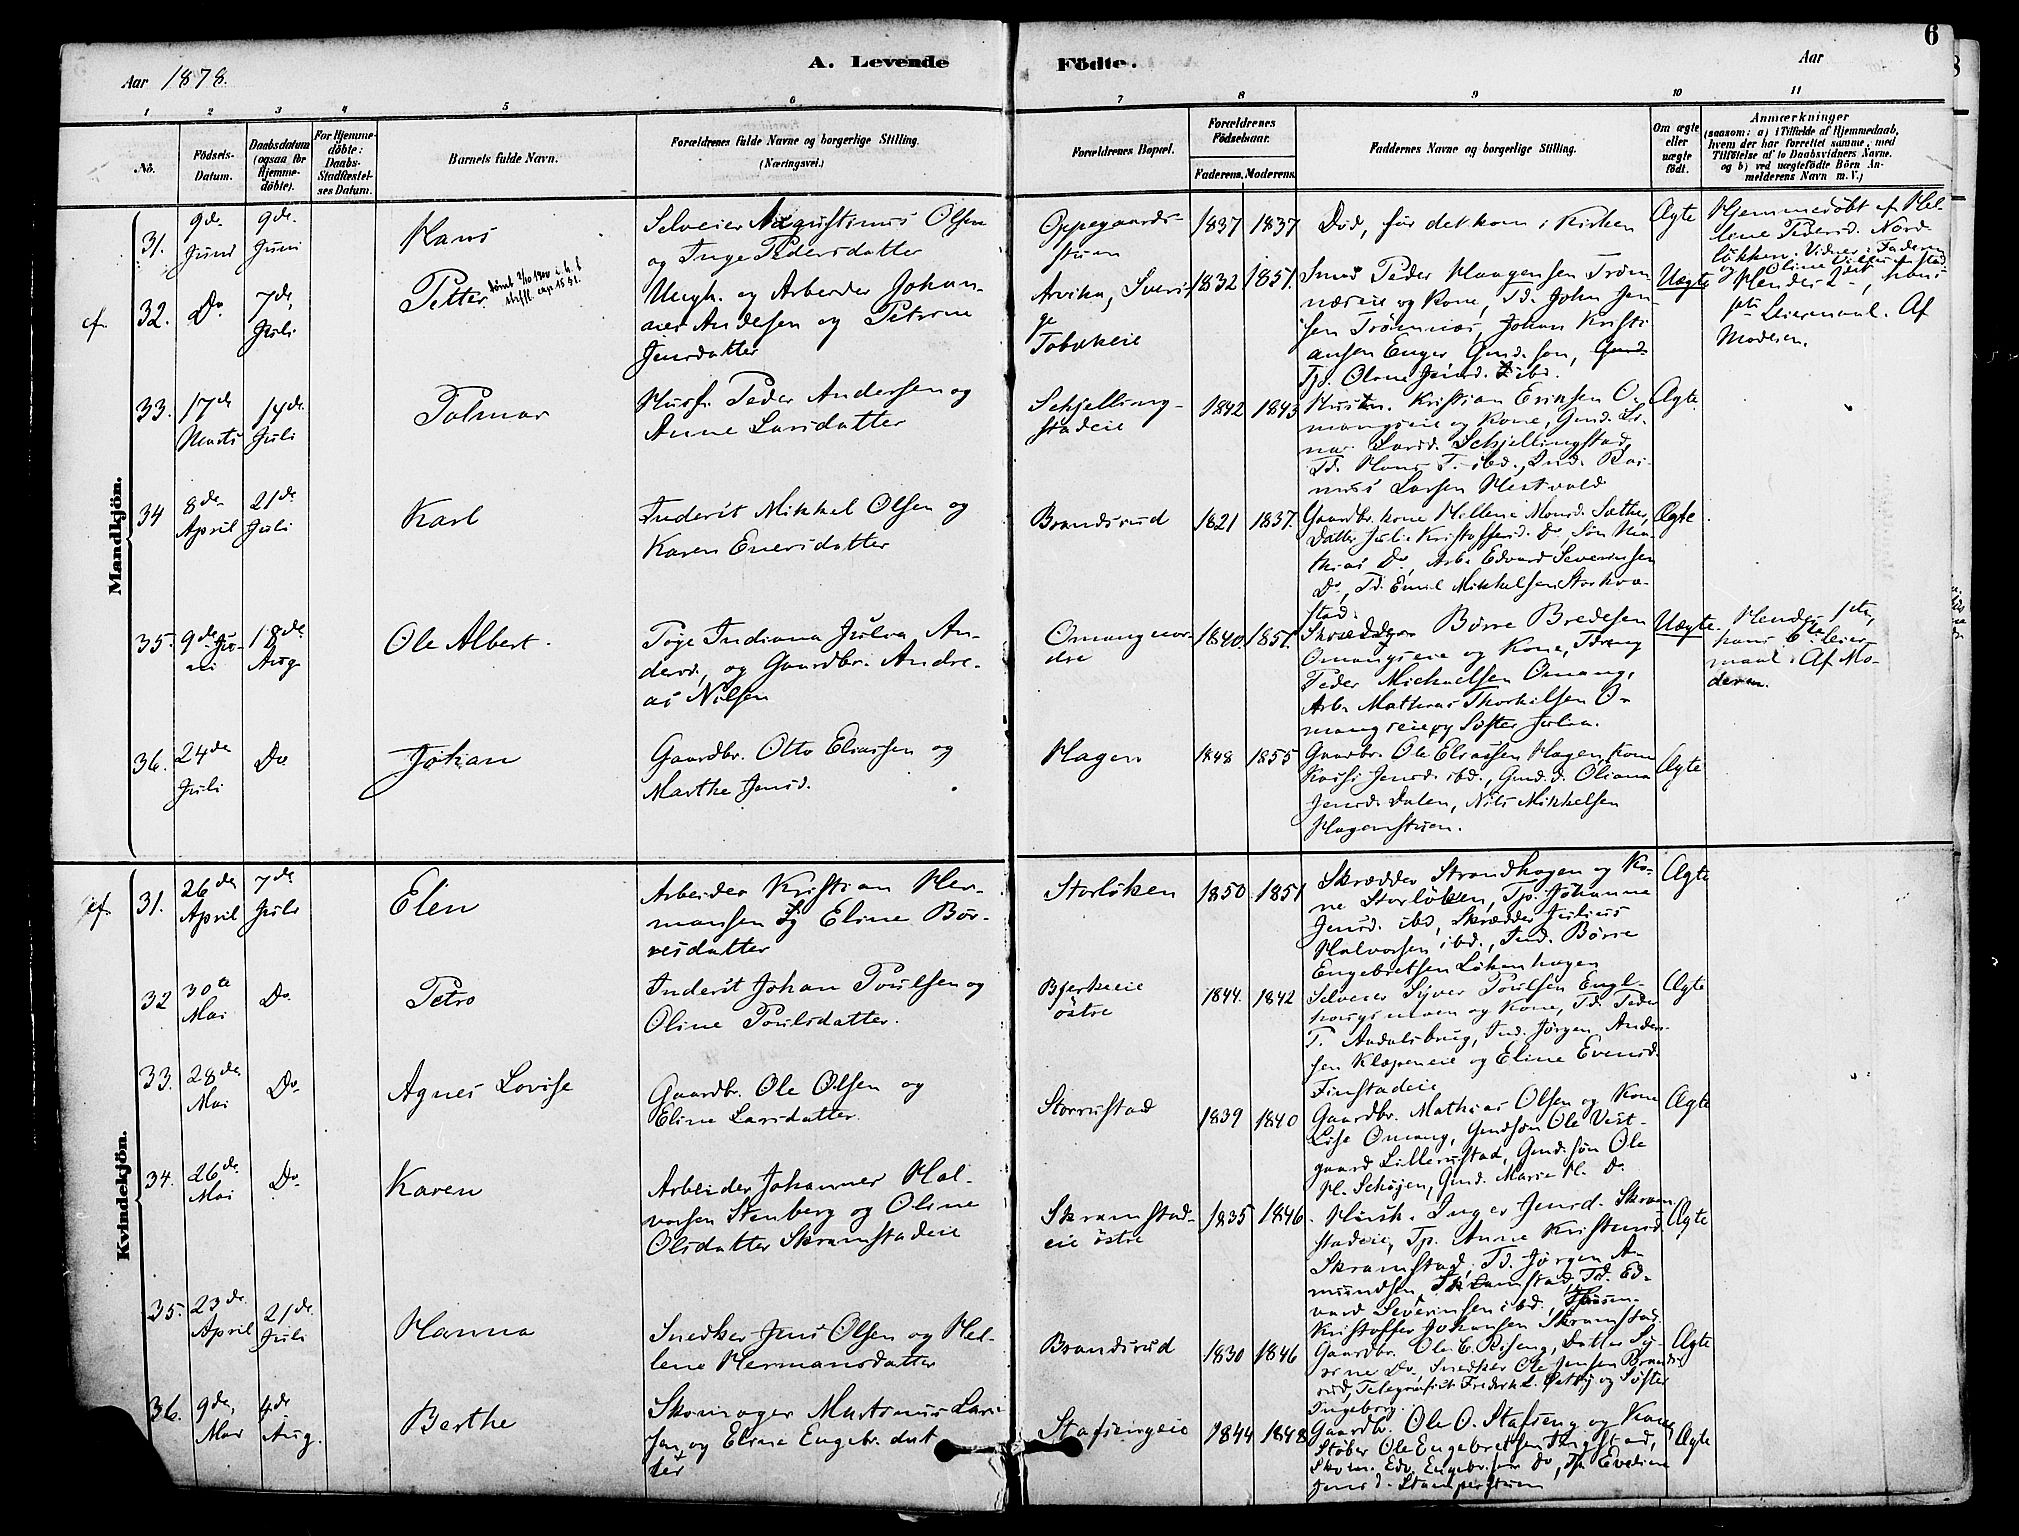 6
Aar 1878.
A. Levende Födte.
Aar
1 2 3 4 5 6 7 8 9 10 11
No.
Födsels-Datum.
Daabsdatum (ogsaa for Hjemme-döbte).
For Hjemme-döbte: Daabs-Stadfæstel-ses Datum.
Barnets fulde Navn.
Forældrenes fulde Navne og borgerlige Stilling. (Næringsvei.)
Forældrenes Bopæl.
Forældrenes Födselsaar.
Faderens. Moderens.
Faddernes Navne og borgerlige Stilling.
Om ægte eller uægte födt.
Anmærkninger (saasom: a) i Tilfælde af Hjemmedaab, hvem der har forrettet samme, med Tilföielse af to Daabsvidners Navne. og b) ved uægtefödte Börn An-melderens Navn m. V.)
Mandkjön.
31. 9de Juni
9de Juni
Hans
Selveier Augustinus Olsen
og Inge Pedersdatter
Oppegaards-
stuen
1837 1837
Død, før det kom i Kirken
Ægte
Hjemmedøbt af Hel-
line Pedersd. Nord-
løkken. Vidner: Faderen
cf. 32. Do
7de Juli
Petter
Ungk. og Arbeider Johan-
nes Andersen og Peterine
Jensdatter
Arvika, Sveri-
ge
Tobækeie
1832 1851.
Smed Peder Haagensen Trøm-
næseie og Kone, Td. John Jen-
sen Trømnæs, Johan Kristi-
ansen Enger Gmd. søn,
Tp. Oline Jensd. ibd.
Uægte
Hendes 2det, hans
1ste Leiermaal. Af
Moderen.
33. 17de Marts
14de Juli
Palmar
Husm. Peder Andersen og
Anne Larsdatter
Schjelling-
stadeie
1842 1843
Husm. Kristian Eriksen O-
mangseie og Kone, Gmd.
Larsd. Schjellingstad,
Td. Hans T. ibd., Ind. Ras-
mus Larsen Hestvold
Ægte.
34 8de April
21de Juli
Karl
Inderst Mikkel Olsen og
Karen Eversdatter
Brandsrud
1821 1837.
Gaardbr. kone Hellene Monsd. Sæther,
Datter Juli Kristoffersd. Do, Søn Ma-
thias Do, Arb. Edvard Severinsen
Do, Td. Emil Mikkelsen Storhva-
stad.
Ægte
35. 9de Ju-
ni
18de Aug
Ole Albert.
Pige Indiana Julia An-
dersd., og Gaardbr. Andre-
as Nilsen
Omang nor-
dre
1840. 1857.
Skrædder Børre Bredesen
Omangseie og Kone, Tdreng
Peder Michaelsen Omang,
Arb. Mathias Thorkilsen O-
mangseie og Søster Julia.
Uægte.
Hendes 1ste,
hans 6te Leier-
maal. Af Mo-
deren.
36. 24de Juli
Do
Johan
Gaardbr. Otto Eliassen og
Marthe Jensd.
Hagen
1848 1855
Gaardbr. Ole Eliassen Hagen, Kone
Kassi Jensd. ibd., Gmd. d. Oliana
Jensd. Dalen, Nils Mikkelsen
Hagenstuen.
Ægte
Kvindekjön.
cf. 31. 26de April
7de Juli
Elen
Arbeider Kristian Her-
mansen og Eline Bør-
resdatter
Storløken
1850. 1851
Skrædder Strandhagen og Ko-
ne Storløken, Tp. Johanne
Jensd. ibd, Skrædder Julius
Halvorsen ibd., Ind. Børre
Engebretsen Løkenhagen
Ægte
32 30te Mai
Do.
Petra
Inderst Johan Poulsen og
Oline Poulsdatter.
Bjerkeeie
østre
1844. 1842
Selveier Syver Poulsen Engl-
haugsmoen og Kone, Td. Peder
P. Aadalsbrug, Ind. Jørgen Ander-
sen Klæpeneie og Eline Evensd.
Finstadeie
Ægte
33. 28de Mai
Do.
Agnes Lovise
Gaardbr. Ole Olsen og
Eline Larsdatter.
Storrustad
1839 1840
Gaardbr. Mathias Olsen og Kone
Lise Omang, Gmdsøn Ole Vest-
gaard Lillerustad, Gmd. søn Ole
H. Schøjen, Gmd. Marie H. Do.
Ægte
34. 26de Mai
Do.
Karen
Arbeider Johannes Hal-
vorsen Stenberg og Oline
Olsdatter Skramstadeie
Skramstad-
eie østre
1835 1846.
Husk. Inger Jensd. Skram-
stadeie, Tp. Anne Kristensd.
Skramstad, Td. Jørgen A-
mundsen Skramstad, Td. Ed-
vard Severinsen ibd.,
Kristoffer Johansen Skramstad.
Ægte
35. 23de April
21de Juli
Hanna
Snedker Jens Olsen og Hel-
lene Hermansdatter
Brandsrud
1830 1846
Gaardbr. Ole E. Biseng, Datter
Do, Snedker Ole Jensen Brands-
rud, Telegrafist Fredrik L. og Søster
Ingeborg.
Ægte
36. 9de Mai
4de Aug.
Berthe
Skomager Martinus Lar-
sen og Eline Engebr. dat-
ter
Stafsengeie
1844 1848
Gaardbr. Ole O. Stafseng og Kone,
Støber Ole Engebretsen Tingstad,
Skom. Edv. Engebr. sen Do, Tp. Eveline
Jensd. Stamperstuen
Ægte